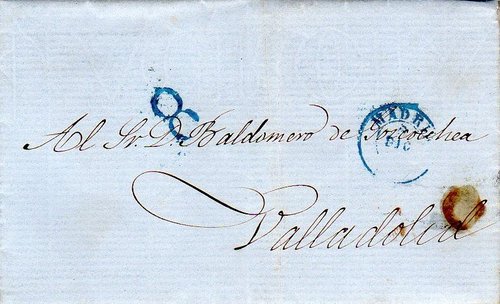 MADRI
DIC
Al Sr. D. Baldomero de Goicoechea
Valladolid